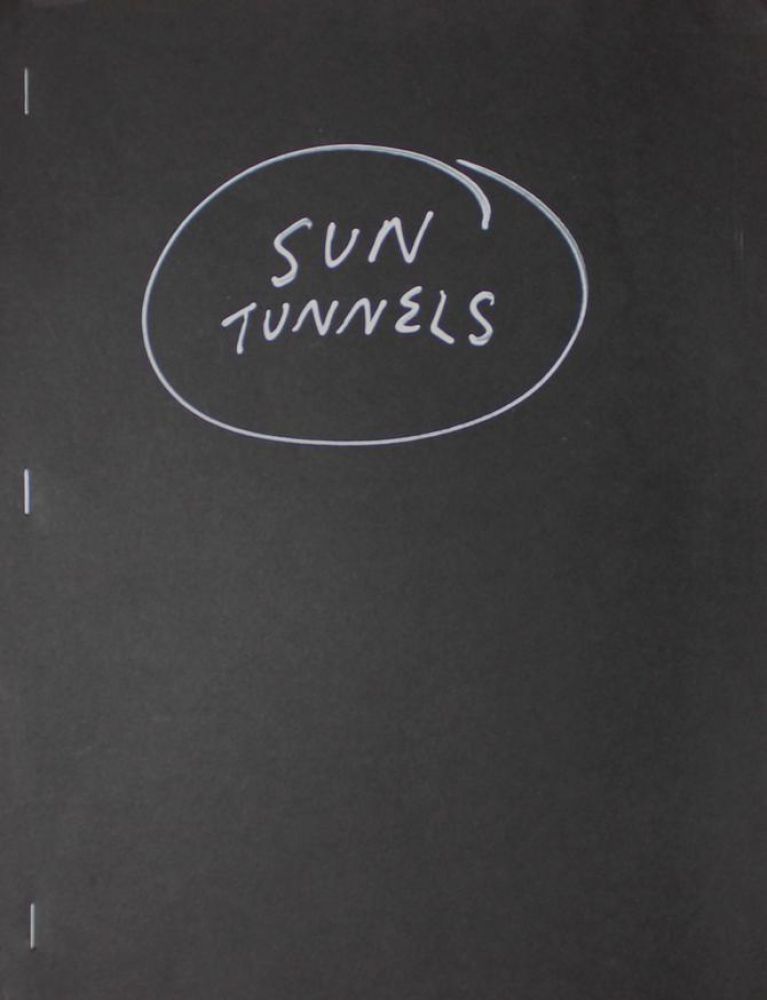 SUN
TUNNELS